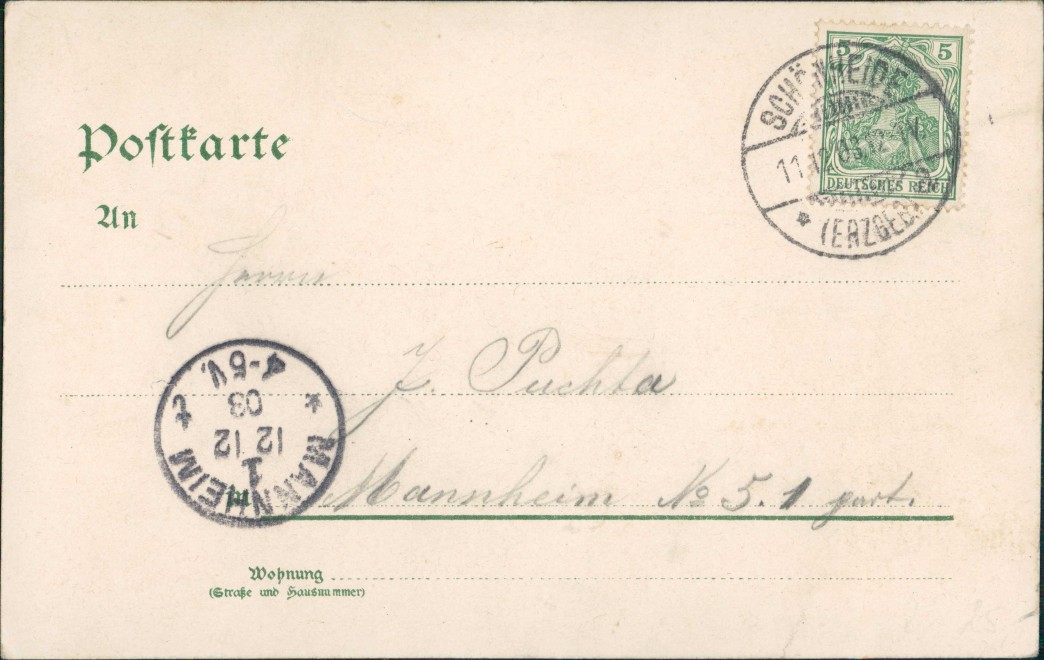 Postkarte
5 5
DEUTSCHES REICH
SCHÖNHEIDE
11.12.03.12-1V.
* (ERZGEB.)
An
Herrn
J. Puchta
* MANNHEIM t
1
12 12
03
4-5V.
in Mannheim No 5. 1 part.
Wohnung
(Straße und Hausnummer)